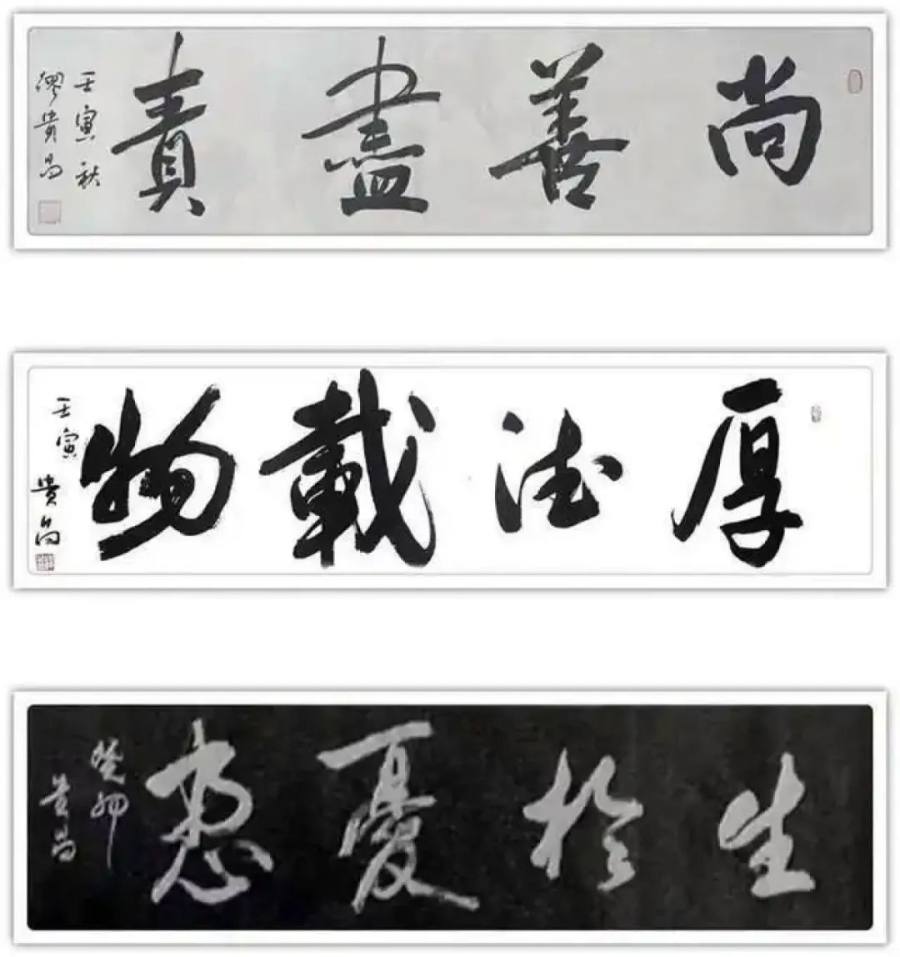 尚善盡責
壬寅秋
繆貴昌
厚德載物
壬寅
貴昌
生於憂患
癸卯
貴昌